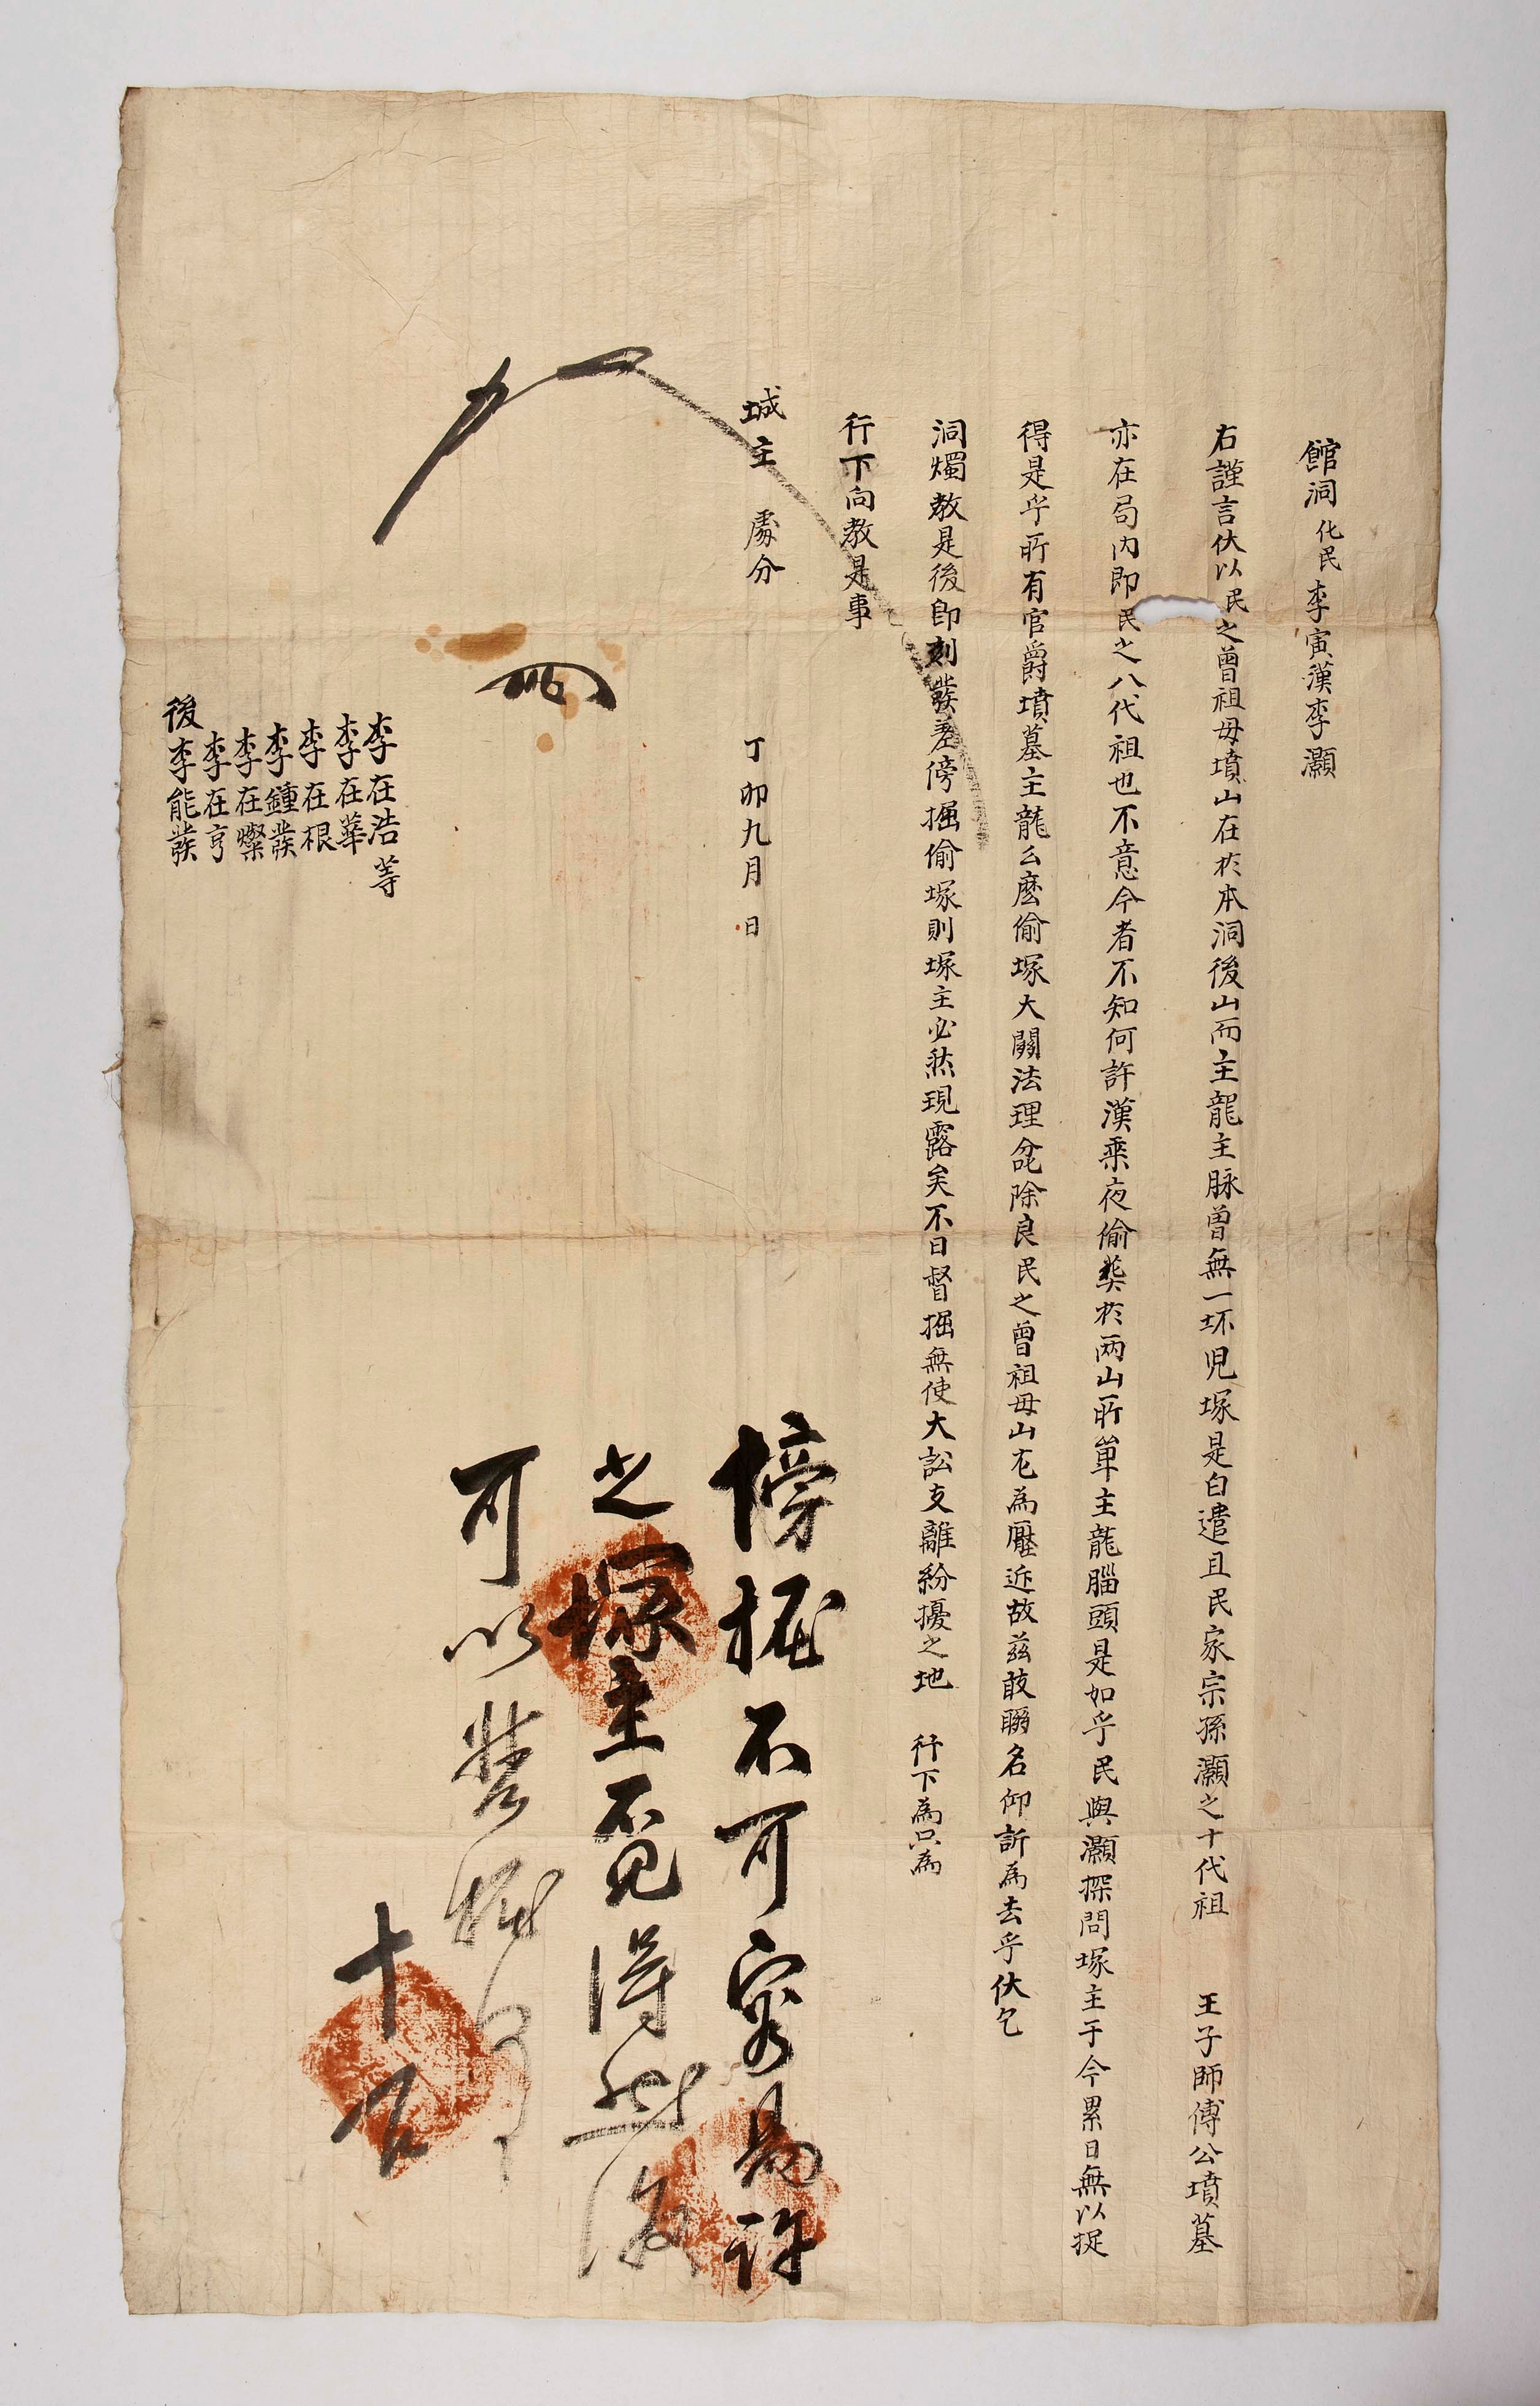 館洞 化民 李寅漢李灝
右謹言伏以民之曾祖母墳山在於本洞後山而主龍主脉曾無一坏児塚是白遣且民家宗孫灝之十代祖 王子師傅公墳墓
亦在局內即民之八代祖也不意今者不知何許漢乘夜偷葬於兩山所單主龍腦頭是如乎民與灝探問塚主于今累日無以捉
得是乎所有官爵墳墓主龍么麽偷塚大關法理叱除良民之曾祖母山尤為壓近故玆敢聯名仰訴為去乎伏乞
洞燭敎是後卽刻發差傍掘偷塚則塚主必然現露矣不日督掘無使大訟支離紛擾之地 行下為只為
行下向敎是事
城主 處分 丁卯九月 日
李在浩等
李在華
李在根
李鍾發
李在燦
李在亨
後李能發
傍掘不可容易許
之塚主覓得然後
可以督掘向事
十九